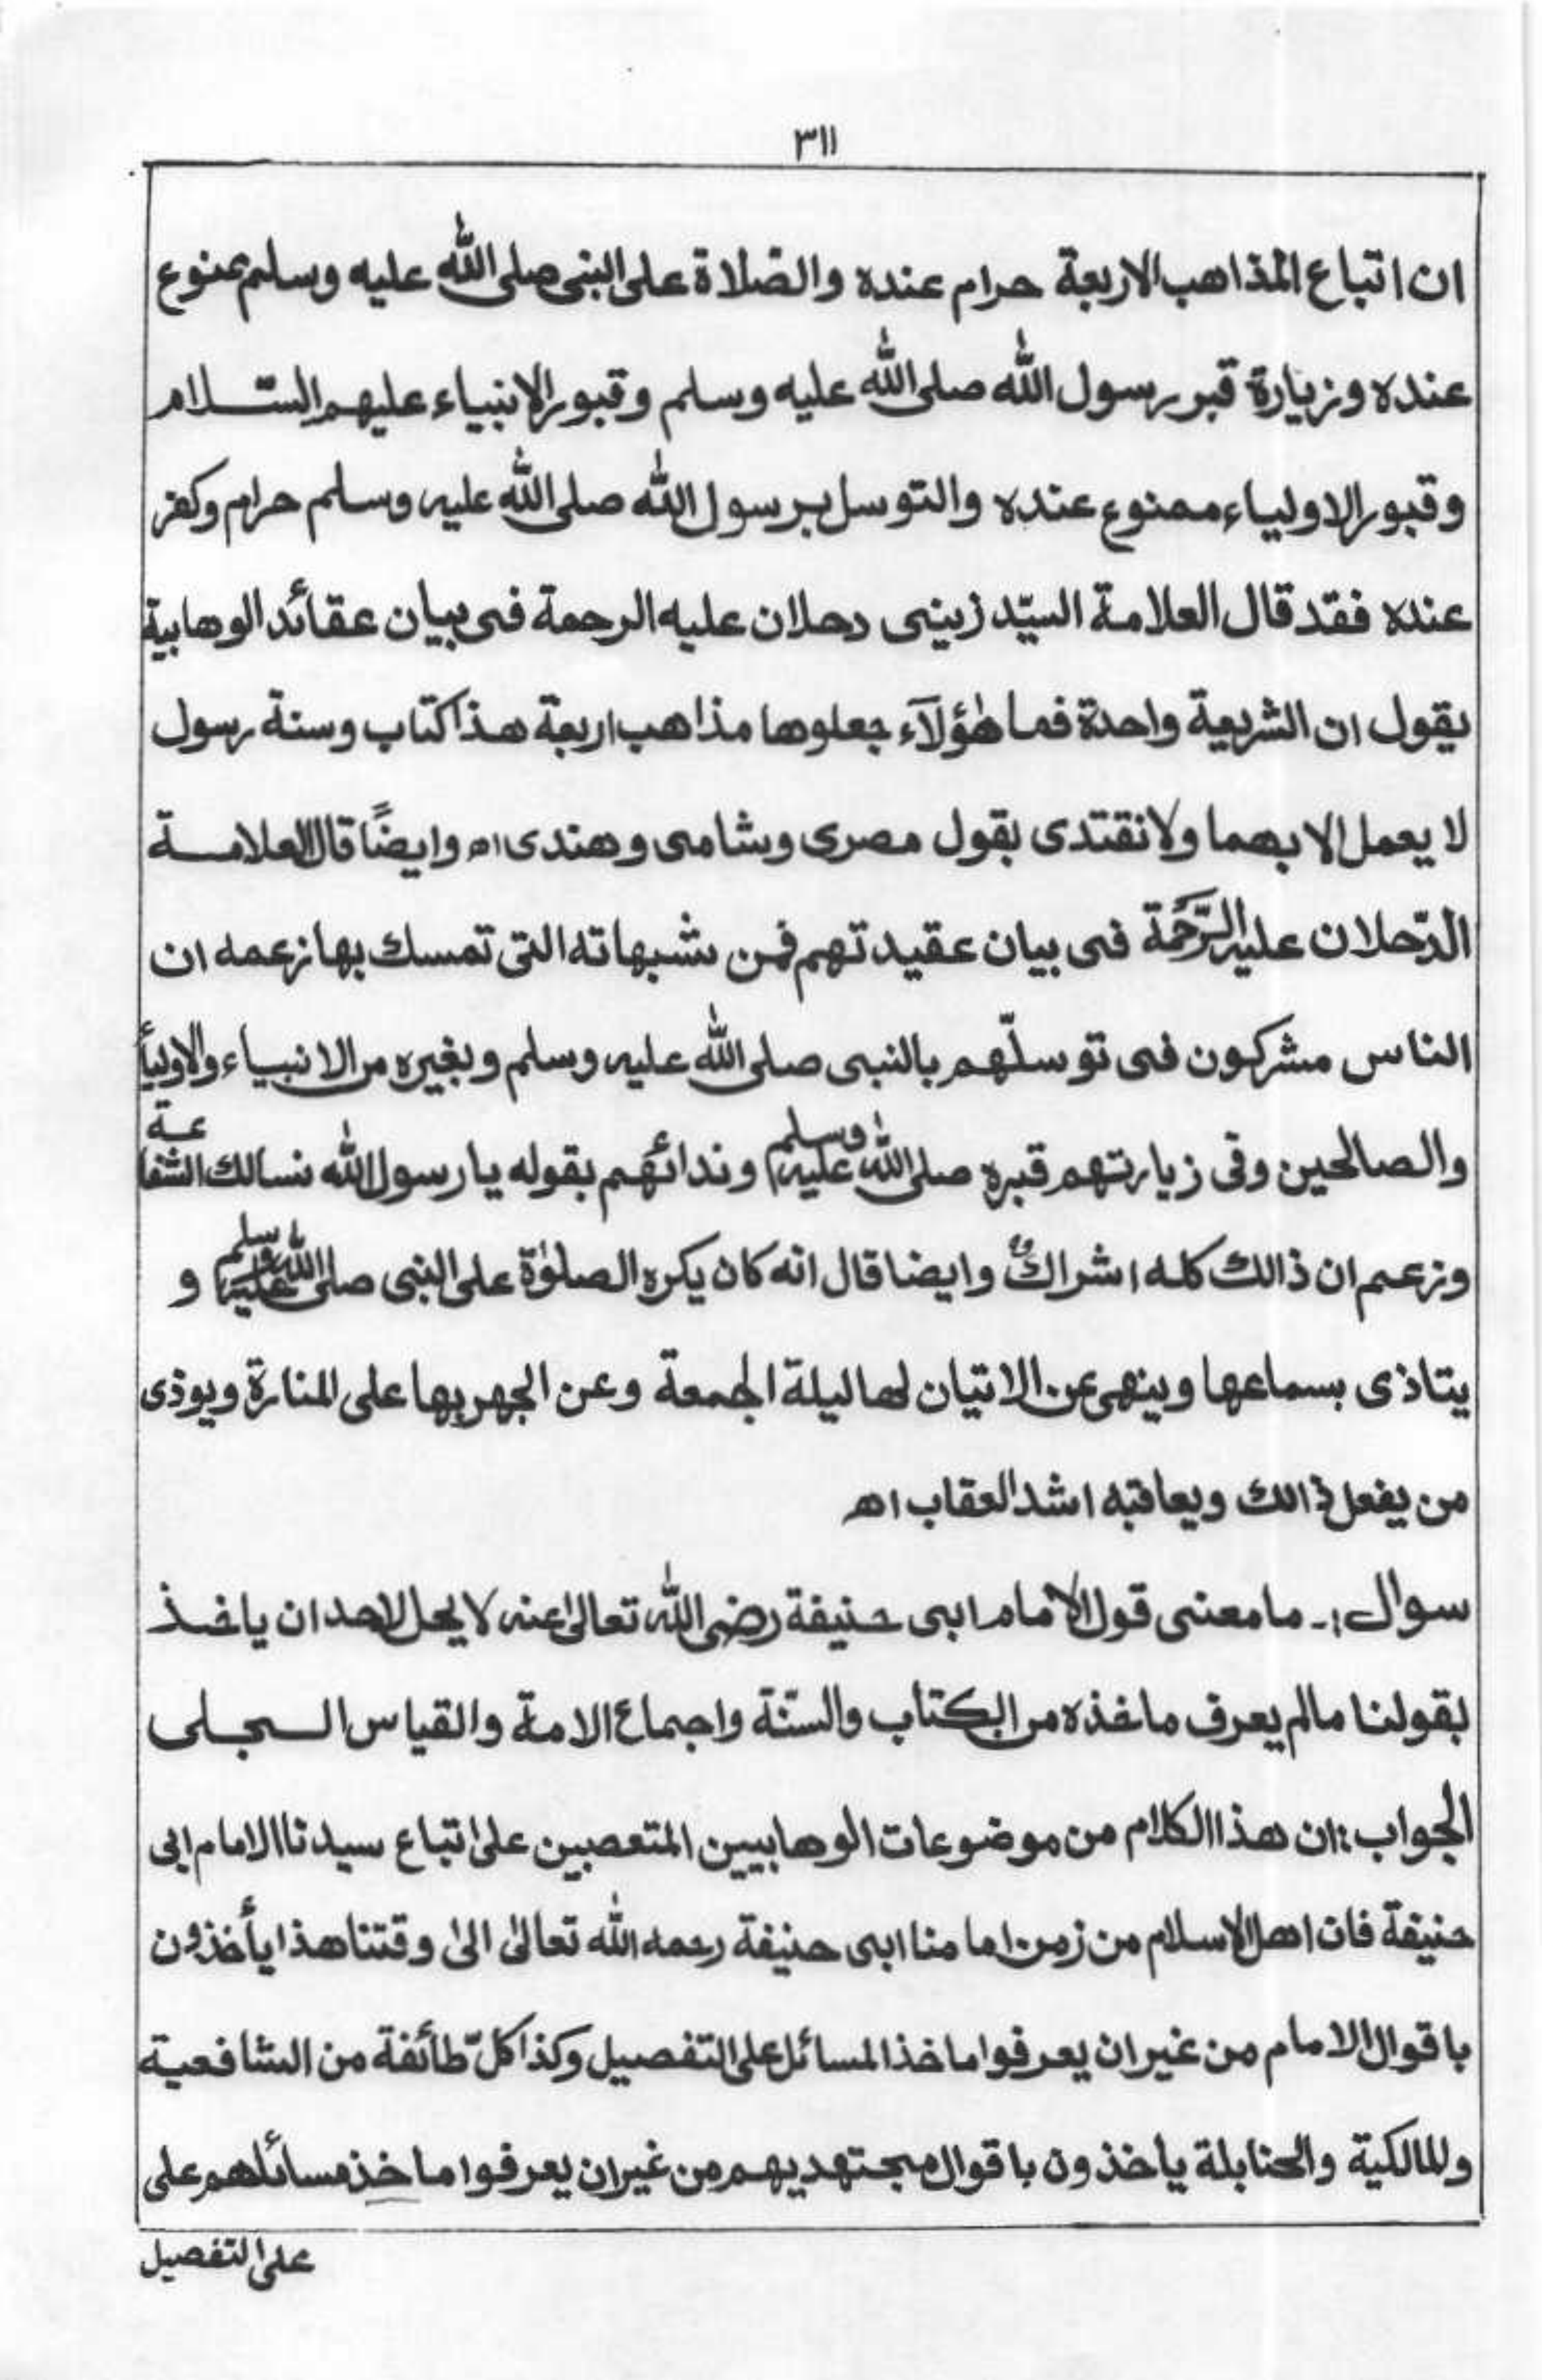 ٣١١
ان اتباع المذاهب الاربعة حرام عنده والصّلاة على النبى صلى الله عليه وسلم ممنوع
عنده وزيارة قبر رسول الله صلى الله عليه وسلم وقبور الانبياء عليهم السّلام
وقبور الاولياء ممنوع عنده والتوسل برسول الله صلى الله عليه وسلم حرام وكفر
عنده فقد قال العلامة السيّد زينى دحلان عليه الرحمة فى بيان عقائد الوهابية
يقول ان الشريعة واحدة فما هٰؤلآء جعلوها مذاهب اربعة هذا كتاب وسنة رسول
لا يعمل الا بهما ولا نقتدى بقول مصرى وشامى وهندى اه وايضًا قال العلامة
الدّحلان عليه الرَّحْمَة فى بيان عقيدتهم فمن شبهاته التى تمسك بها زعمه ان
الناس مشركون فى توسلّهم بالنبى صلى الله عليه وسلم وبغيره من الانبياء والاوليأ
والصالحين وفى زيارتهم قبره صلى الله عليه وسلم وندائهم بقوله يا رسول الله نسالك الشفاعة
وزعم ان ذالك كله اشراكٌ وايضا قال انه كان يكره الصلوٰة على النبى صلى الله عليه وسلم و
يتاذى بسماعها وينهى عن الاتيان لها ليلة الجمعة وعن الجهر بها على المنارة ويوذى
من يفعل ذالك ويعاقبه اشد العقاب اه
سوال :۔ ما معنى قول الامام ابى حنيفة رضى الله تعالىٰ عنه لا يحل لاحد ان ياخذ
بقولنا مالم يعرف ماخذه من الكتاب والسنّة واجماع الامة والقياس الجلى
الجواب: ان هذا الكلام من موضوعات الوهابيين المتعصبين علىٰ اتباع سيدنا الامام ابى
حنيفة فان اهل الاسلام من زمن امامنا ابى حنيفة رحمه الله تعالىٰ الىٰ وقتنا هذا يأخذون
باقوال الامام من غير ان يعرفوا ماخذ المسائل على التفصيل وكذا كلّ طائفة من الشافعية
والمالكية والحنابلة يأخذون باقوال مجتهديهم من غير ان يعرفوا ماخذ مسائلهم على
على التفصيل